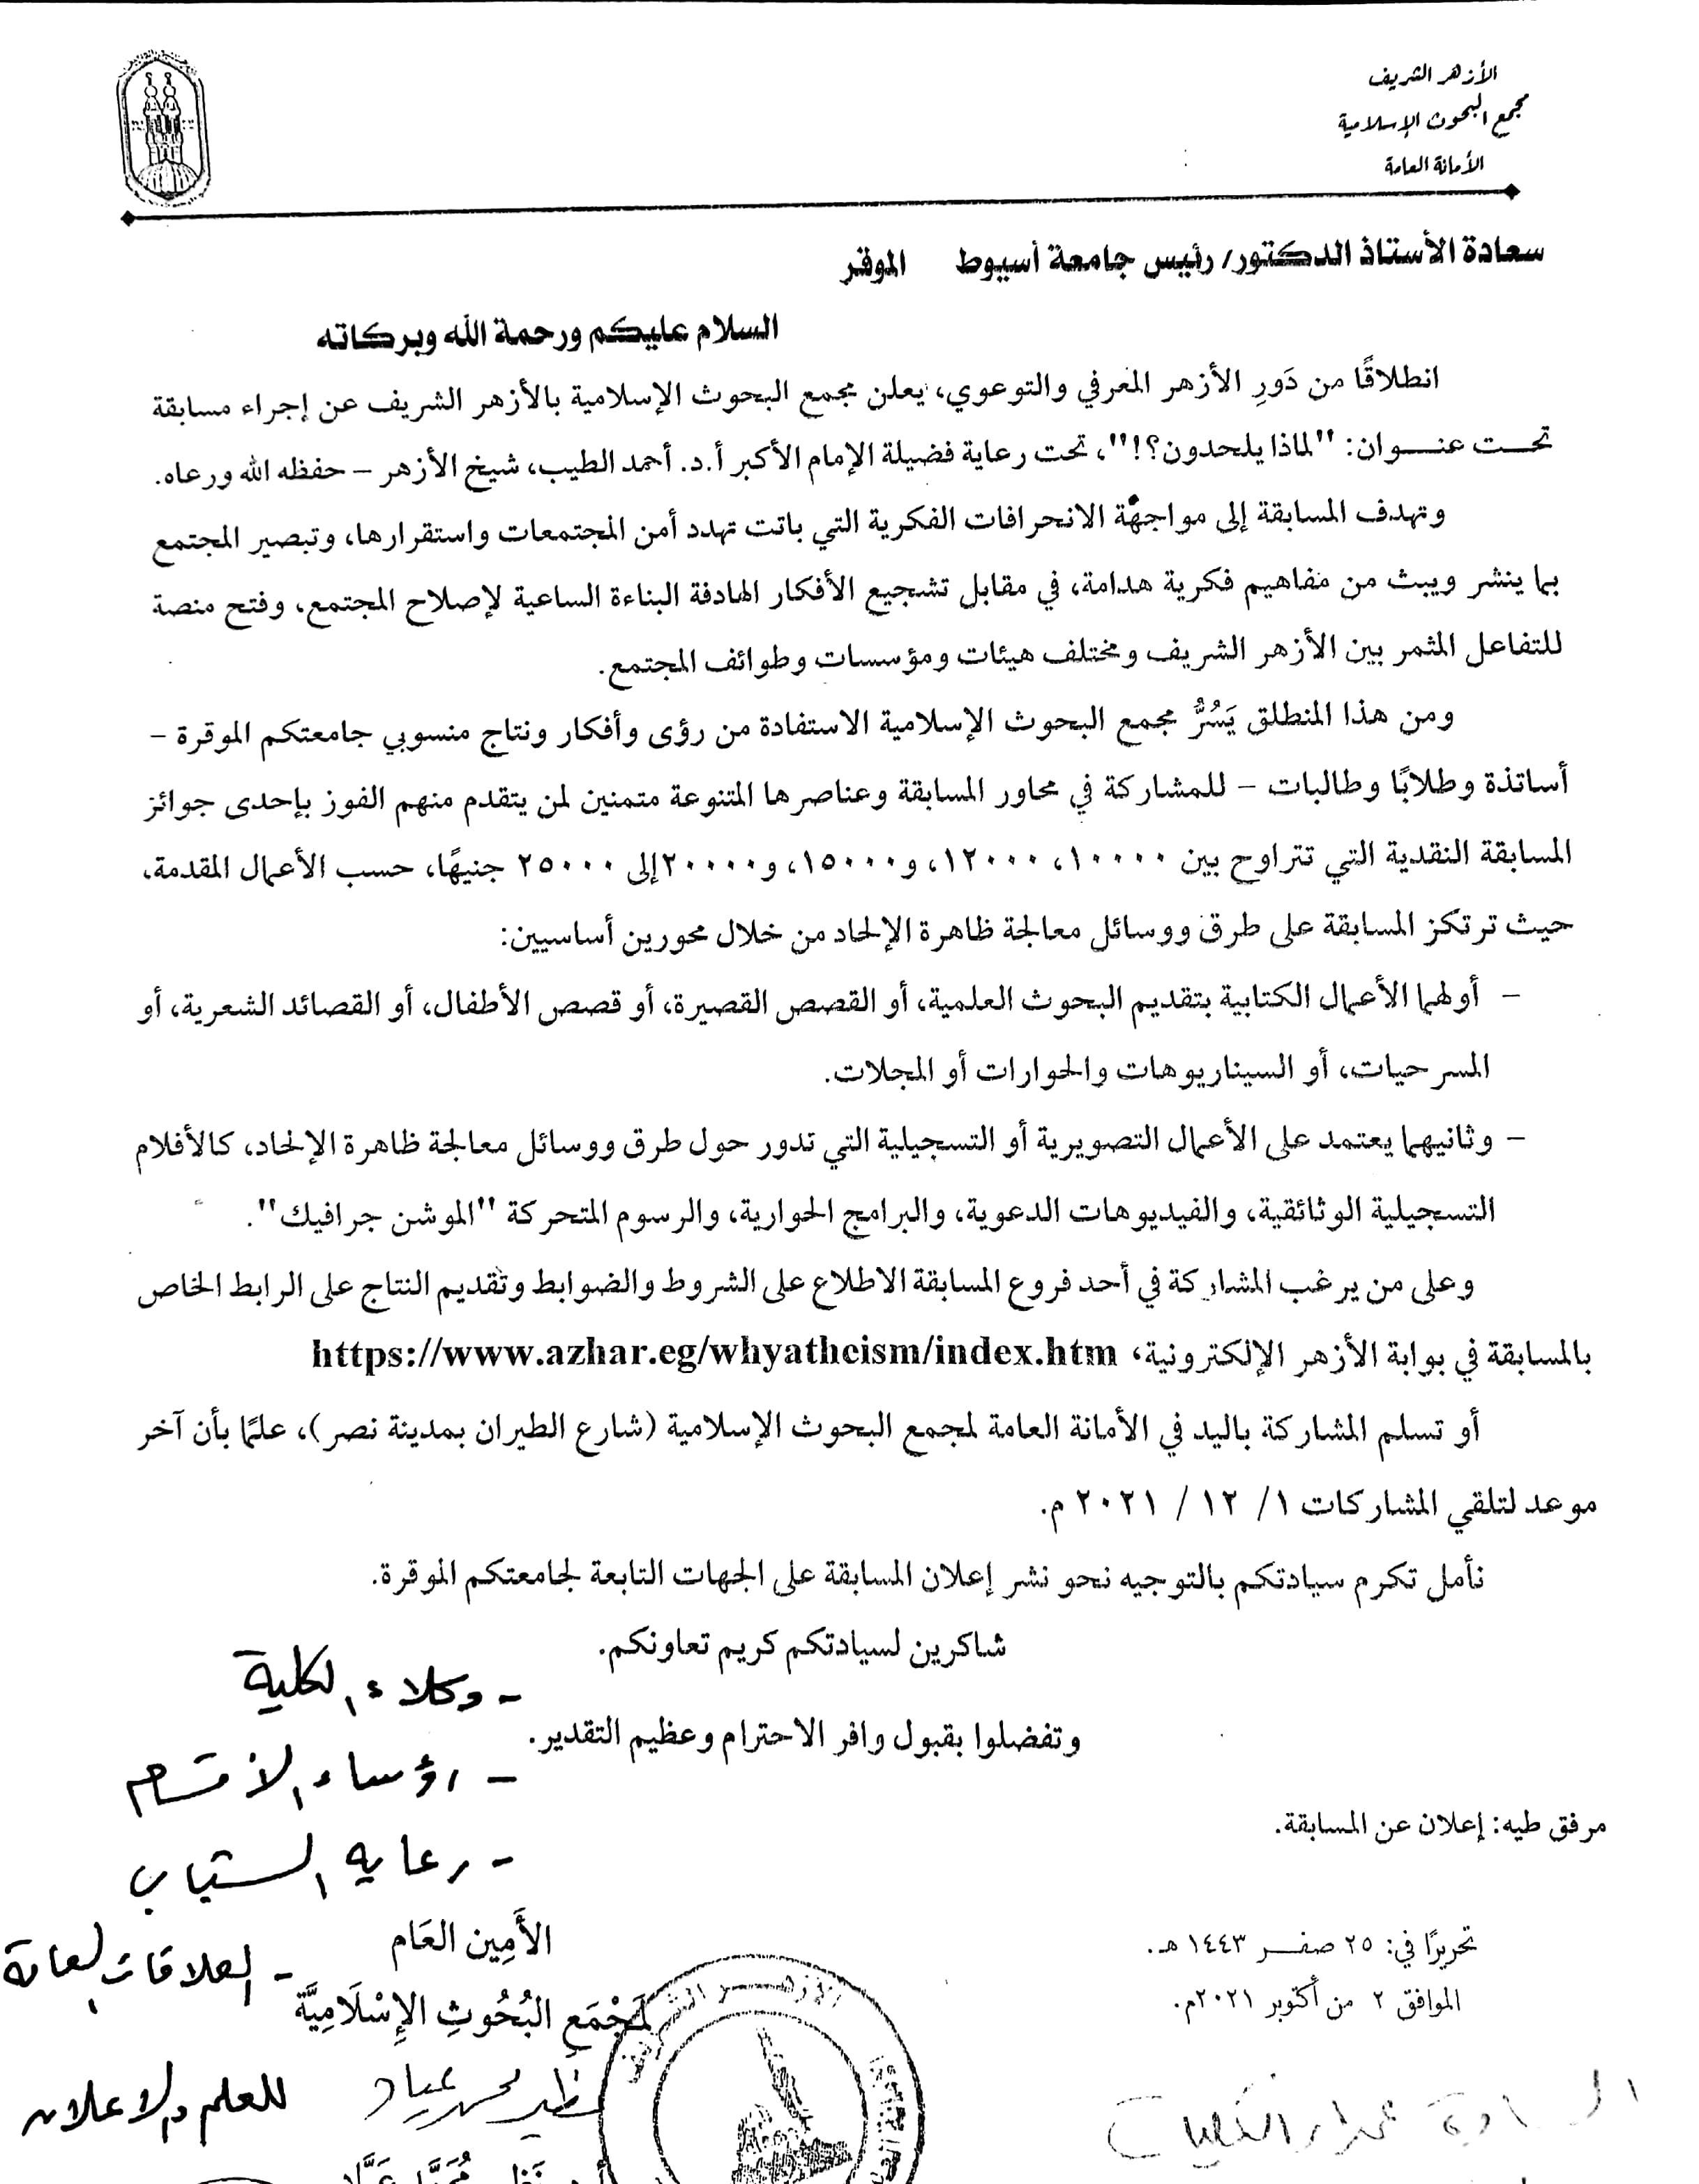 الأزهر الشريف
مجمع البحوث الإسلامية
الأمانة العامة
سعادة الأستاذ الدكتور/ رئيس جامعة أسيوط الموقر
السلام عليكم ورحمة الله وبركاته
انطلاقًا من دَورِ الأزهر المعرفي والتوعوي، يعلن مجمع البحوث الإسلامية بالأزهر الشريف عن إجراء مسابقة
تحت عنوان: "لماذا يلحدون؟!"، تحت رعاية فضيلة الإمام الأكبر أ.د. أحمد الطيب، شيخ الأزهر – حفظه الله ورعاه.
وتهدف المسابقة إلى مواجهة الانحرافات الفكرية التي باتت تهدد أمن المجتمعات واستقرارها، وتبصير المجتمع
بما ينشر ويبث من مفاهيم فكرية هدامة، في مقابل تشجيع الأفكار الهادفة البناءة الساعية لإصلاح المجتمع، وفتح منصة
للتفاعل المثمر بين الأزهر الشريف ومختلف هيئات ومؤسسات وطوائف المجتمع.
ومن هذا المنطلق يَسُرُّ مجمع البحوث الإسلامية الاستفادة من رؤى وأفكار ونتاج منسوبي جامعتكم الموقرة –
أساتذة وطلابًا وطالبات – للمشاركة في محاور المسابقة وعناصرها المتنوعة متمنين لمن يتقدم منهم الفوز بإحدى جوائز
المسابقة النقدية التي تتراوح بين ١٠٠٠٠، ١٢٠٠٠، و١٥٠٠٠، و٢٠٠٠٠إلى ٢٥٠٠٠ جنيهًا، حسب الأعمال المقدمة،
حيث ترتكز المسابقة على طرق ووسائل معالجة ظاهرة الإلحاد من خلال محورين أساسيين:
– أولهما الأعمال الكتابية بتقديم البحوث العلمية، أو القصص القصيرة، أو قصص الأطفال، أو القصائد الشعرية، أو
المسرحيات، أو السيناريوهات والحوارات أو المجلات.
– وثانيهما يعتمد على الأعمال التصويرية أو التسجيلية التي تدور حول طرق ووسائل معالجة ظاهرة الإلحاد، كالأفلام
التسجيلية الوثائقية، والفيديوهات الدعوية، والبرامج الحوارية، والرسوم المتحركة "الموشن جرافيك".
وعلى من يرغب المشاركة في أحد فروع المسابقة الاطلاع على الشروط والضوابط وتقديم النتاج على الرابط الخاص
بالمسابقة في بوابة الأزهر الإلكترونية، https://www.azhar.eg/whyatheism/index.htm
أو تسلم المشاركة باليد في الأمانة العامة لمجمع البحوث الإسلامية (شارع الطيران بمدينة نصر)، علمًا بأن آخر
موعد لتلقي المشاركات ١/ ١٢ / ٢٠٢١ م.
نأمل تكرم سيادتكم بالتوجيه نحو نشر إعلان المسابقة على الجهات التابعة لجامعتكم الموقرة.
شاكرين لسيادتكم كريم تعاونكم.
- وكلاء الكلية
وتفضلوا بقبول وافر الاحترام وعظيم التقدير.
- رؤساء الأقسام
مرفق طيه: إعلان عن المسابقة.
- رعاية الشباب
الأَمِين العَام
- العلاقات العامة
لمَجْمَعِ البُحُوثِ الإِسْلَامِيَّة
تحريرًا في: ٢٥ صفر ١٤٤٣ هـ.
الموافق ٢ من أكتوبر ٢٠٢١م.
الأزهر الشريف
نظير محمد عياد
للعلم والاعلان